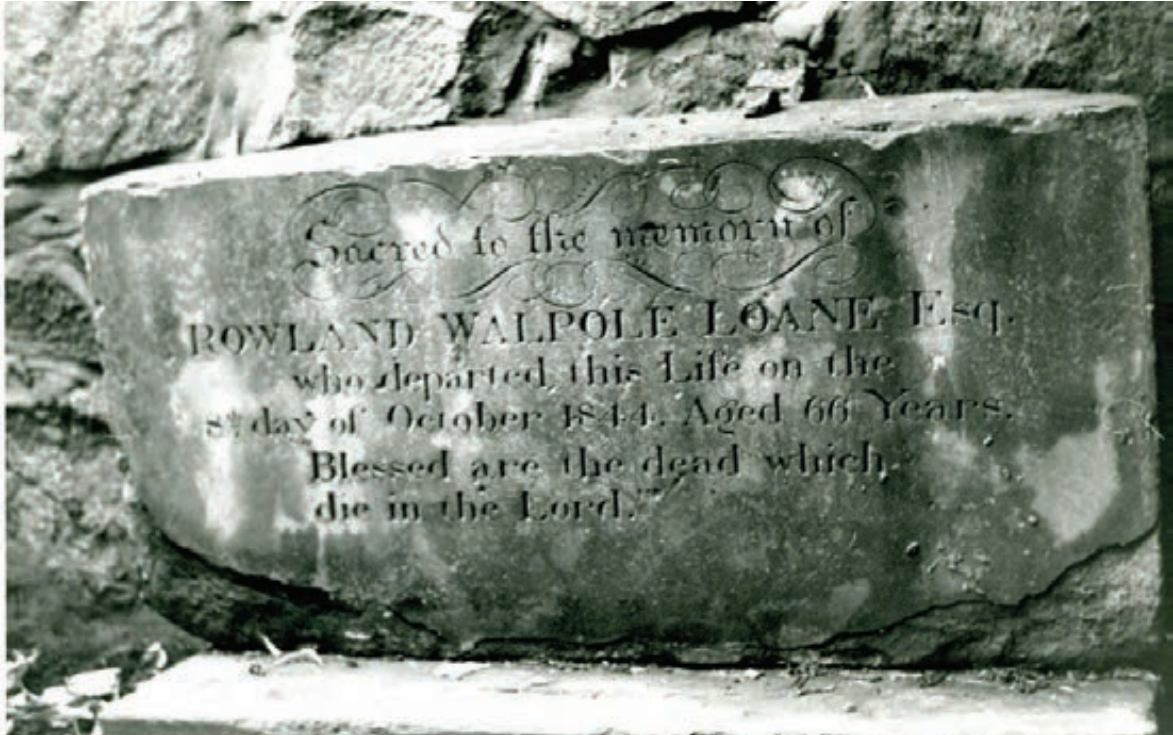 Sacred to the memory of
ROWLAND WALPOLE LOANE Esq.
who departed, this Life on the
8th day of October 1844. Aged 66 Years.
Blessed are the dead which
die in the Lord."